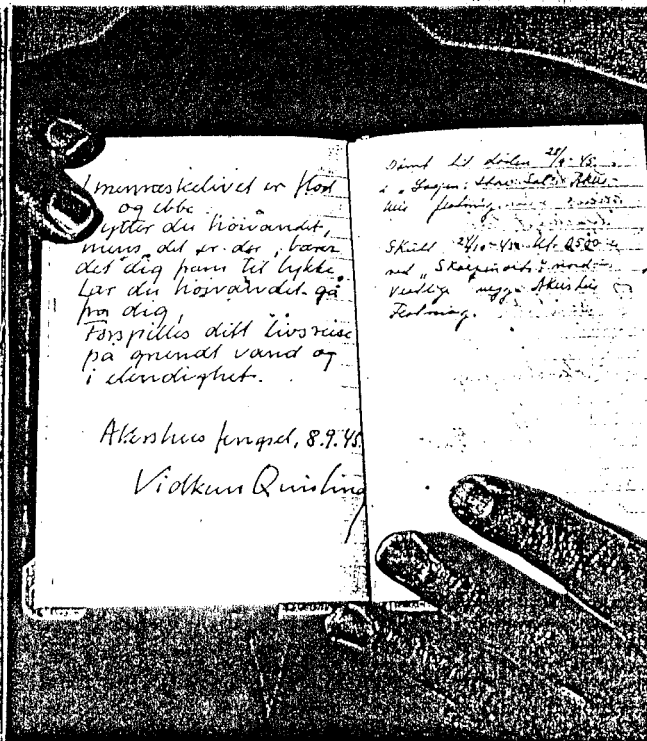 I menneskelivet er flod
og ebbe.
Nytter du höivandet,
mens det er der, bærer
det dig fram til lykke.
Lar du höivandet gå
fra dig,
Forspilles ditt livsreise
på grundt vand og
i elendighet.
Akershus fengsel, 8.9.45.
Vidkun Quisling
Dömt til döden
i "Logen"s Store Sal
festning
Skutt 24/10-45 kl. 0500
ved "Skarpenords" nord-
vestlige vegg Akershus
Festning.